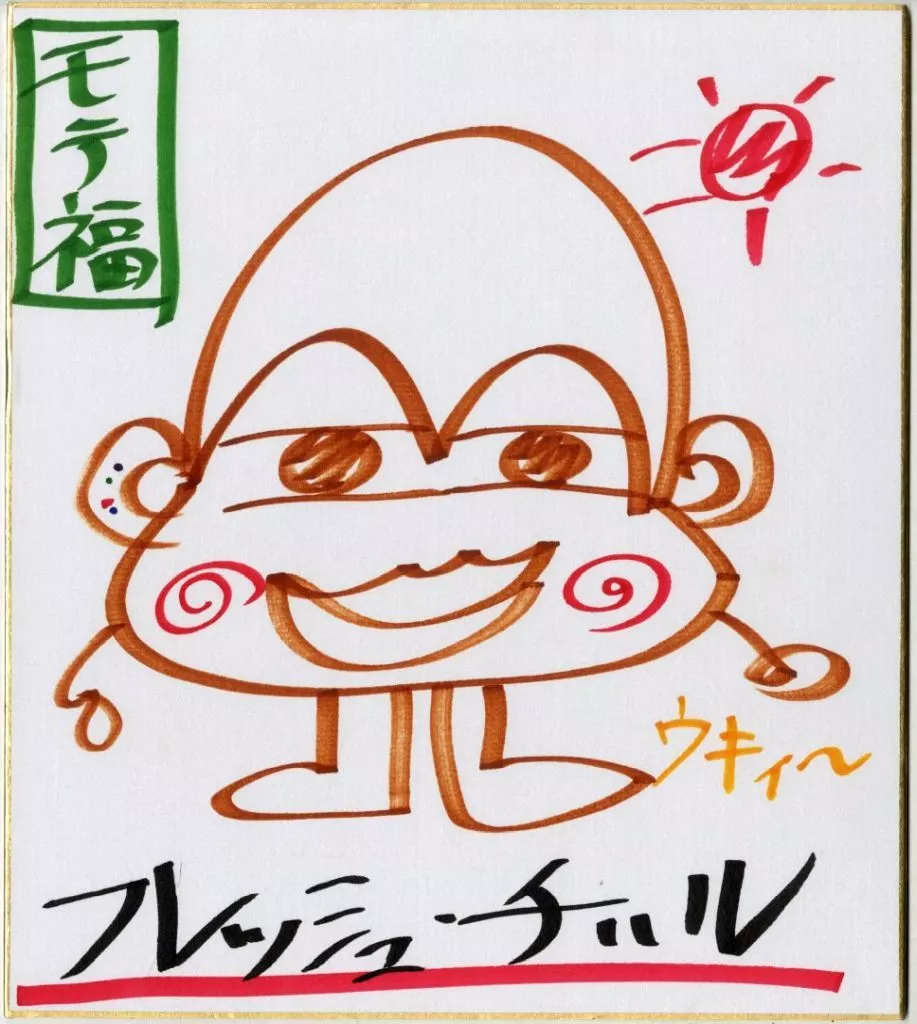 モテ福
ウキィ〜
フレッシュ・チハル